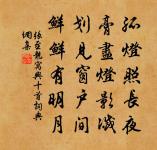 孤燈照長夜
膏盡燈影滅
划見窗戶間
鮮鮮有明月
張至龍寓興十首詞典
網集